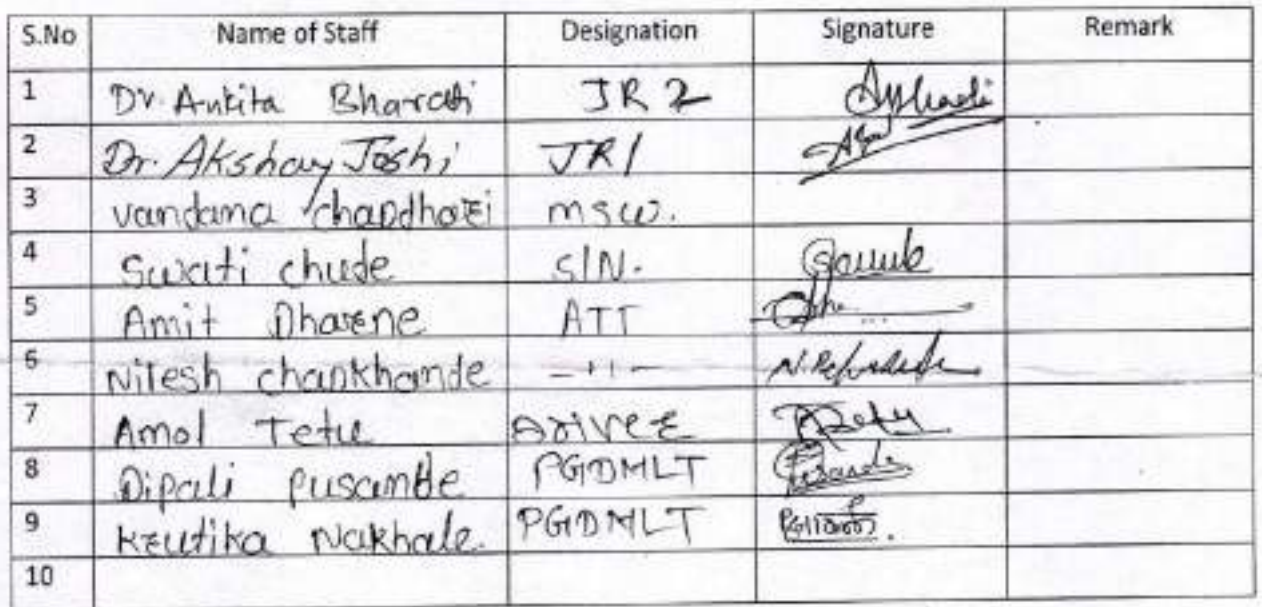 S.No Name of Staff Designation Signature Remark
1 Dr. Ankita Bharati JR 2
2 Dr. Akshay Joshi JR1
3 vandana chaudhari msw.
4 Swati chude S/N.
5 Amit Dharne ATT
6 Nitesh chankhande -11-
7 Amol Tetu Driver
8 Dipali Pusande PGDMLT
9 Krutika Nakhale. PGDMLT
10